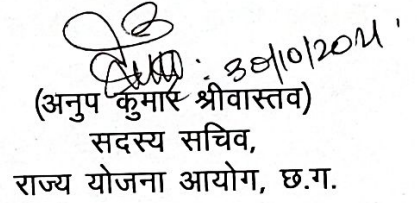 30/10/2021
(अनुप कुमार श्रीवास्तव)
सदस्य सचिव,
राज्य योजना आयोग, छ.ग.